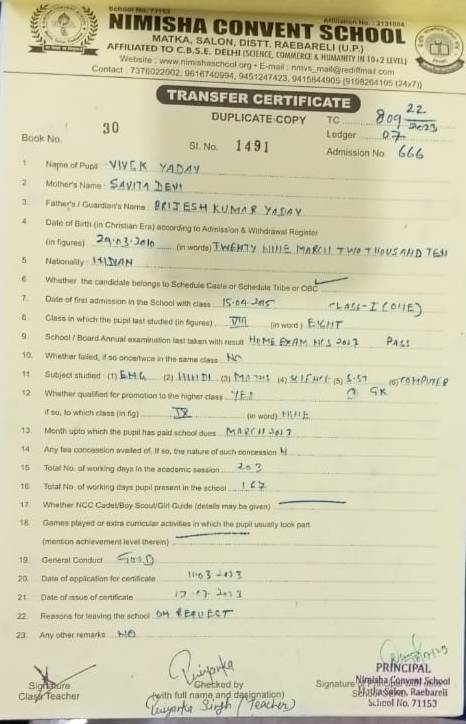 School No. 71153
Affiliation No. : 2131084
NIMISHA CONVENT SCHOOL
MATKA, SALON, DISTT. RAEBARELI (U.P.)
AFFILIATED TO C.B.S.E. DELHI (SCIENCE, COMMERCE & HUMANITY IN 10+2 LEVEL)
Website : www.nimishaschool.org • E-mail : nmvs_mail@rediffmail.com
Contact : 7376022002, 9616740994, 9451247423, 9415844905 (9198264105 (24x7))
TRANSFER CERTIFICATE
DUPLICATE-COPY TC 809 22/2023
Book No. 30 Ledger 07
Sl. No. 1491 Admission No 666
1 Name of Pupil VIVEK YADAV
2. Mother's Name : SAVITA DEVI
3. Father's / Guardian's Name : BRIJESH KUMAR YADAV
4. Date of Birth (in Christian Era) according to Admission & Withdrawal Register
(in figures) 29.03.2010 (in words) TWENTY NINE MARCH TWO THOUSAND TEN
5. Nationality INDIAN
6. Whether the candidate belongs to Schedule Caste or Schedule Tribe or OBC
7. Date of first admission in the School with class 15.04.2015 CLASS-I (ONE)
8. Class in which the pupil last studied (in figures) VIII (in word) EIGHT
9. School / Board Annual examination last taken with result HOME EXAM NCS 2023 PASS
10. Whether failed, if so once/twice in the same class NO
11. Subject studied : (1) ENG (2) HINDI (3) MATHS (4) SCIENCE (5) S.ST (6) COMPUTER
(7) GK
12. Whether qualified for promotion to the higher class YES
if so, to which class (in fig) IX (in word) NINE
13. Month upto which the pupil has paid school dues MARCH 2023
14. Any fee concession availed of, if so, the nature of such concession
15. Total No. of working days in the academic session 203
16. Total No. of working days pupil present in the school 167
17. Whether NCC Cadet/Boy Scout/Girl Guide (details may be given)
18. Games played or extra curricular activities in which the pupil usually took part
(mention achievement level therein)
19. General Conduct GOOD
20. Date of application for certificate
21. Date of issue of certificate
22. Reasons for leaving the school ON REQUEST
23. Any other remarks NO
Priyanka
PRINCIPAL
Signature Checked by Signature Nimisha Convent School
Class Teacher (with full name and designation) Matka Salon, Raebareli
Priyanka Singh (Teacher) School No. 71153